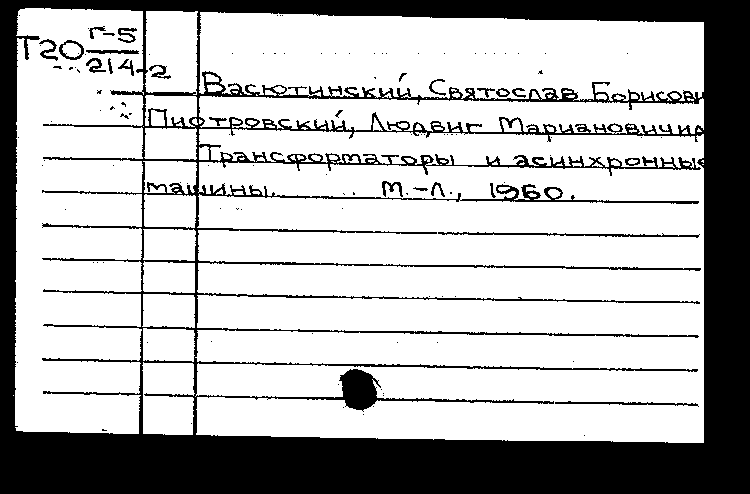 Т20 Г-5
214-2
Васютинский, Святослав Борисови
Пиотровский, Людвиг Мариановичи
Трансформаторы и асинхронные
машины. М.-Л., 1960.